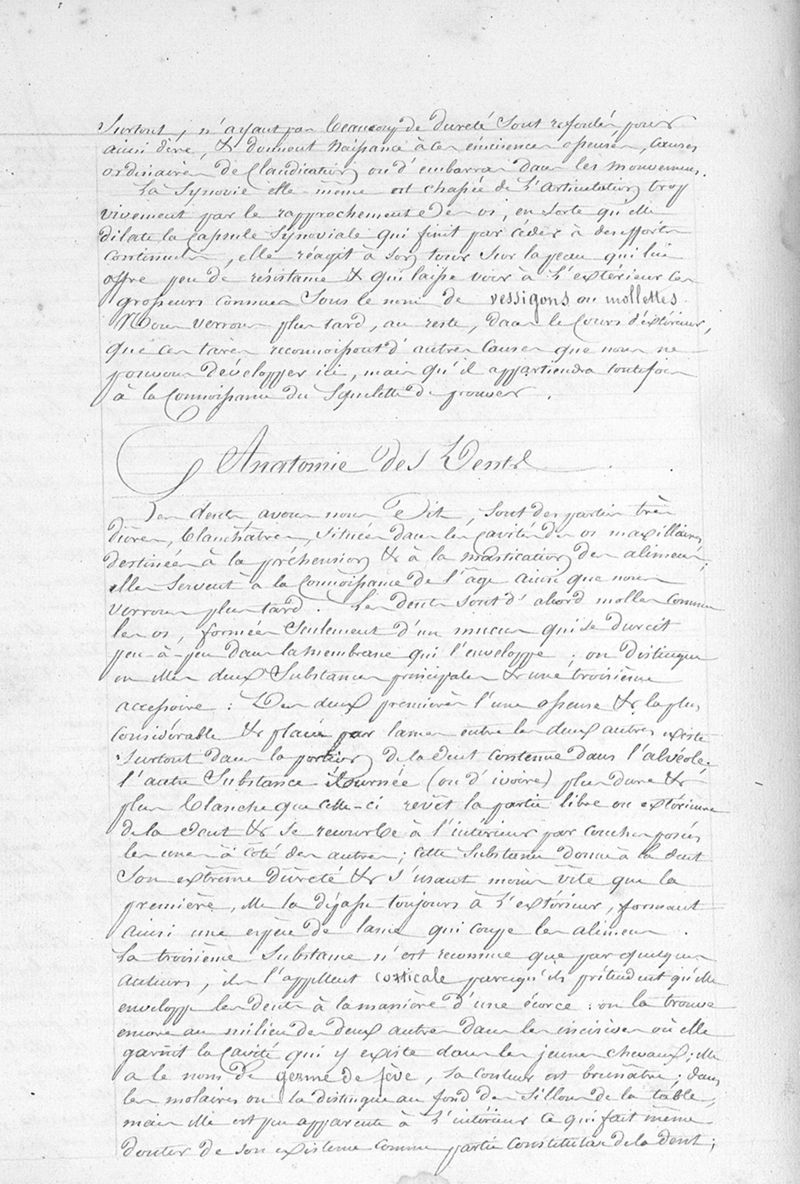 Surtout, n'ayant pas beaucoup de dureté sont refoulés pour
ainsi dire, & donnent naissance à ces éminences osseuses, causes
ordinaires de Claudication ou d'embarras dans les mouvemens.
La Synovie elle-même est chassée de l'Articulation trop
vivement par le rapprochement des os, en sorte qu'elle
dilate la Capsule Synoviale qui finit par céder à des efforts
continuels, elle réagit à son tour sur la peau qui lui
offre peu de résistance & qui laisse voir à l'extérieur ces
grosseurs connues sous le nom de vessigons ou mollettes.
Nous verrons plus tard, au reste, dans le Cours d'extérieur,
que ces tares reconnoissent d'autres Causes que nous ne
pouvons développer ici, mais qu'il appartiendra toutefois
à la Connoissance du Squelette de prouver.
Anatomie des Dents
Les dents avons nous Dit, sont des parties très
dures, blanchâtres, situées dans les cavités des os maxillaires
destinées à la préhension & à la mastication des alimens,
elles servent à la Connoissance de l'âge ainsi que nous
verrons plus tard. Les dents sont d'abord molles comme
les os, formées seulement d'un mucus qui se durcit
peu-à-peu dans la membrane qui l'enveloppe; on distingue
en elles deux Substances principales & une troisième
accessoire: Des deux premières l'une osseuse & la plus
considérable & placée par lames entre les deux autres existe
surtout dans la portion de la dent contenue dans l'alvéole
l'autre Substance Eburnée (ou d'ivoire) plus dure &
plus blanche que celle-ci revêt la partie libre ou extérieure
de la dent & se recourbe à l'intérieur par couches posées
les unes à côté des autres; cette Substance donne à la dent
son extrême dûreté & s'usant moins vîte que la
première, elle la dépasse toujours à l'extérieur, formant
ainsi une espèce de lame qui coupe les alimens.
La troisième Substance n'est reconnue que par quelques
auteurs, ils l'appellent corticale parcequ'ils prétendent qu'elle
enveloppe les dents à la manière d'une écorce: on la trouve
encore au milieu des deux autres dans les incisives où elle
garnit la Cavité qui y existe dans les jeunes chevaux; elle
a le nom de germe de fève, sa couleur est brunâtre; dans
les molaires on la distingue au fond des sillons de la table,
mais elle est peu apparente à l'intérieur ce qui fait même
douter de son existence comme partie Constitutive de la dent;